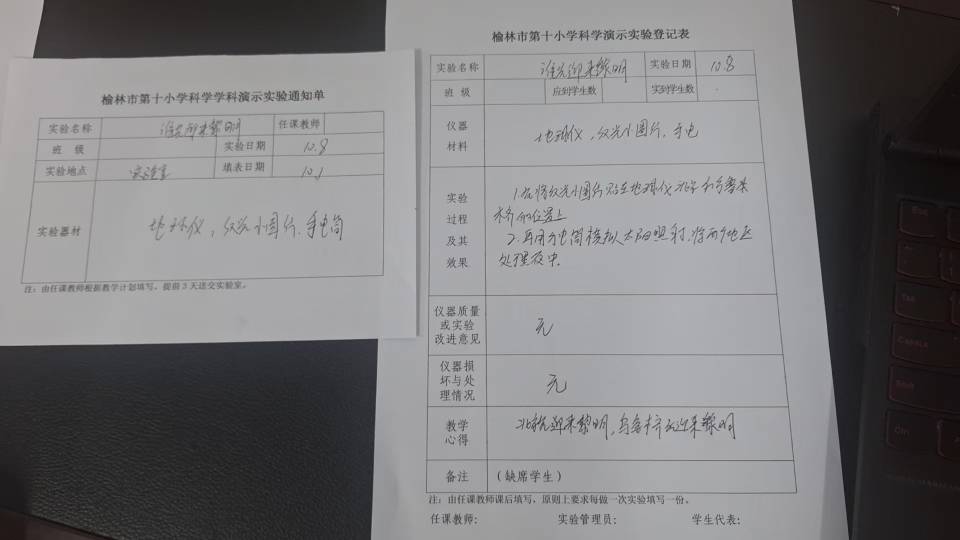 榆林市第十小学科学学科演示实验通知单
实验名称 谁先迎来黎明 任课教师
班 级 实验日期 10.8
实验地点 实验室 填表日期 10.1
实验器材 地球仪，红光小圆片，手电筒
注：由任课教师根据教学计划填写，提前3天送交实验室。
榆林市第十小学科学演示实验登记表
实验名称 谁先迎来黎明 实验日期 10.8
班 级 应到学生数 实到学生数
仪器
材料
地球仪，红光小圆片，手电
实验
过程
及其
效果
1.先将红光小圆片贴在地球仪北京和乌鲁木
齐的位置上
2.再用手电筒模拟太阳照射，将两个地区
处理夜中.
仪器质量
或实验
改进意见
无
仪器损
坏与处
理情况
无
教学
心得
北京先迎来黎明，乌鲁木齐后迎来黎明
备注 （缺席学生）
注：由任课教师课后填写，原则上要求每做一次实验填写一份。
任课教师： 实验管理员： 学生代表：
Esc
Tab
CapsLk
Shift
Ctrl